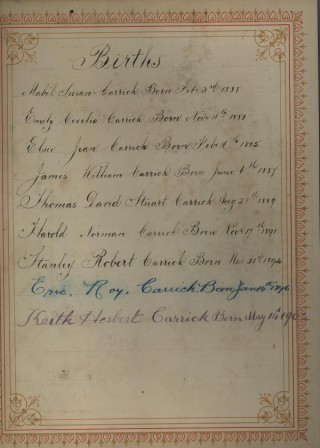 Births
Mabel Susan Carrick Born Feb 3rd 1881
Emily Cecelia Carrick Born Nov 11th 1882
Elsie Jean Carrick Born Feb 1885
James William Carrick Born June 6th 1887
Thomas David Stuart Carrick Aug 25th 1889
Harold Norman Carrick Born Nov 17th 1891
Stanley Robert Carrick Born Mar 21st 1894
Eric. Roy. Carrick Born Jan 1896
Keith Herbert Carrick Born May 14th